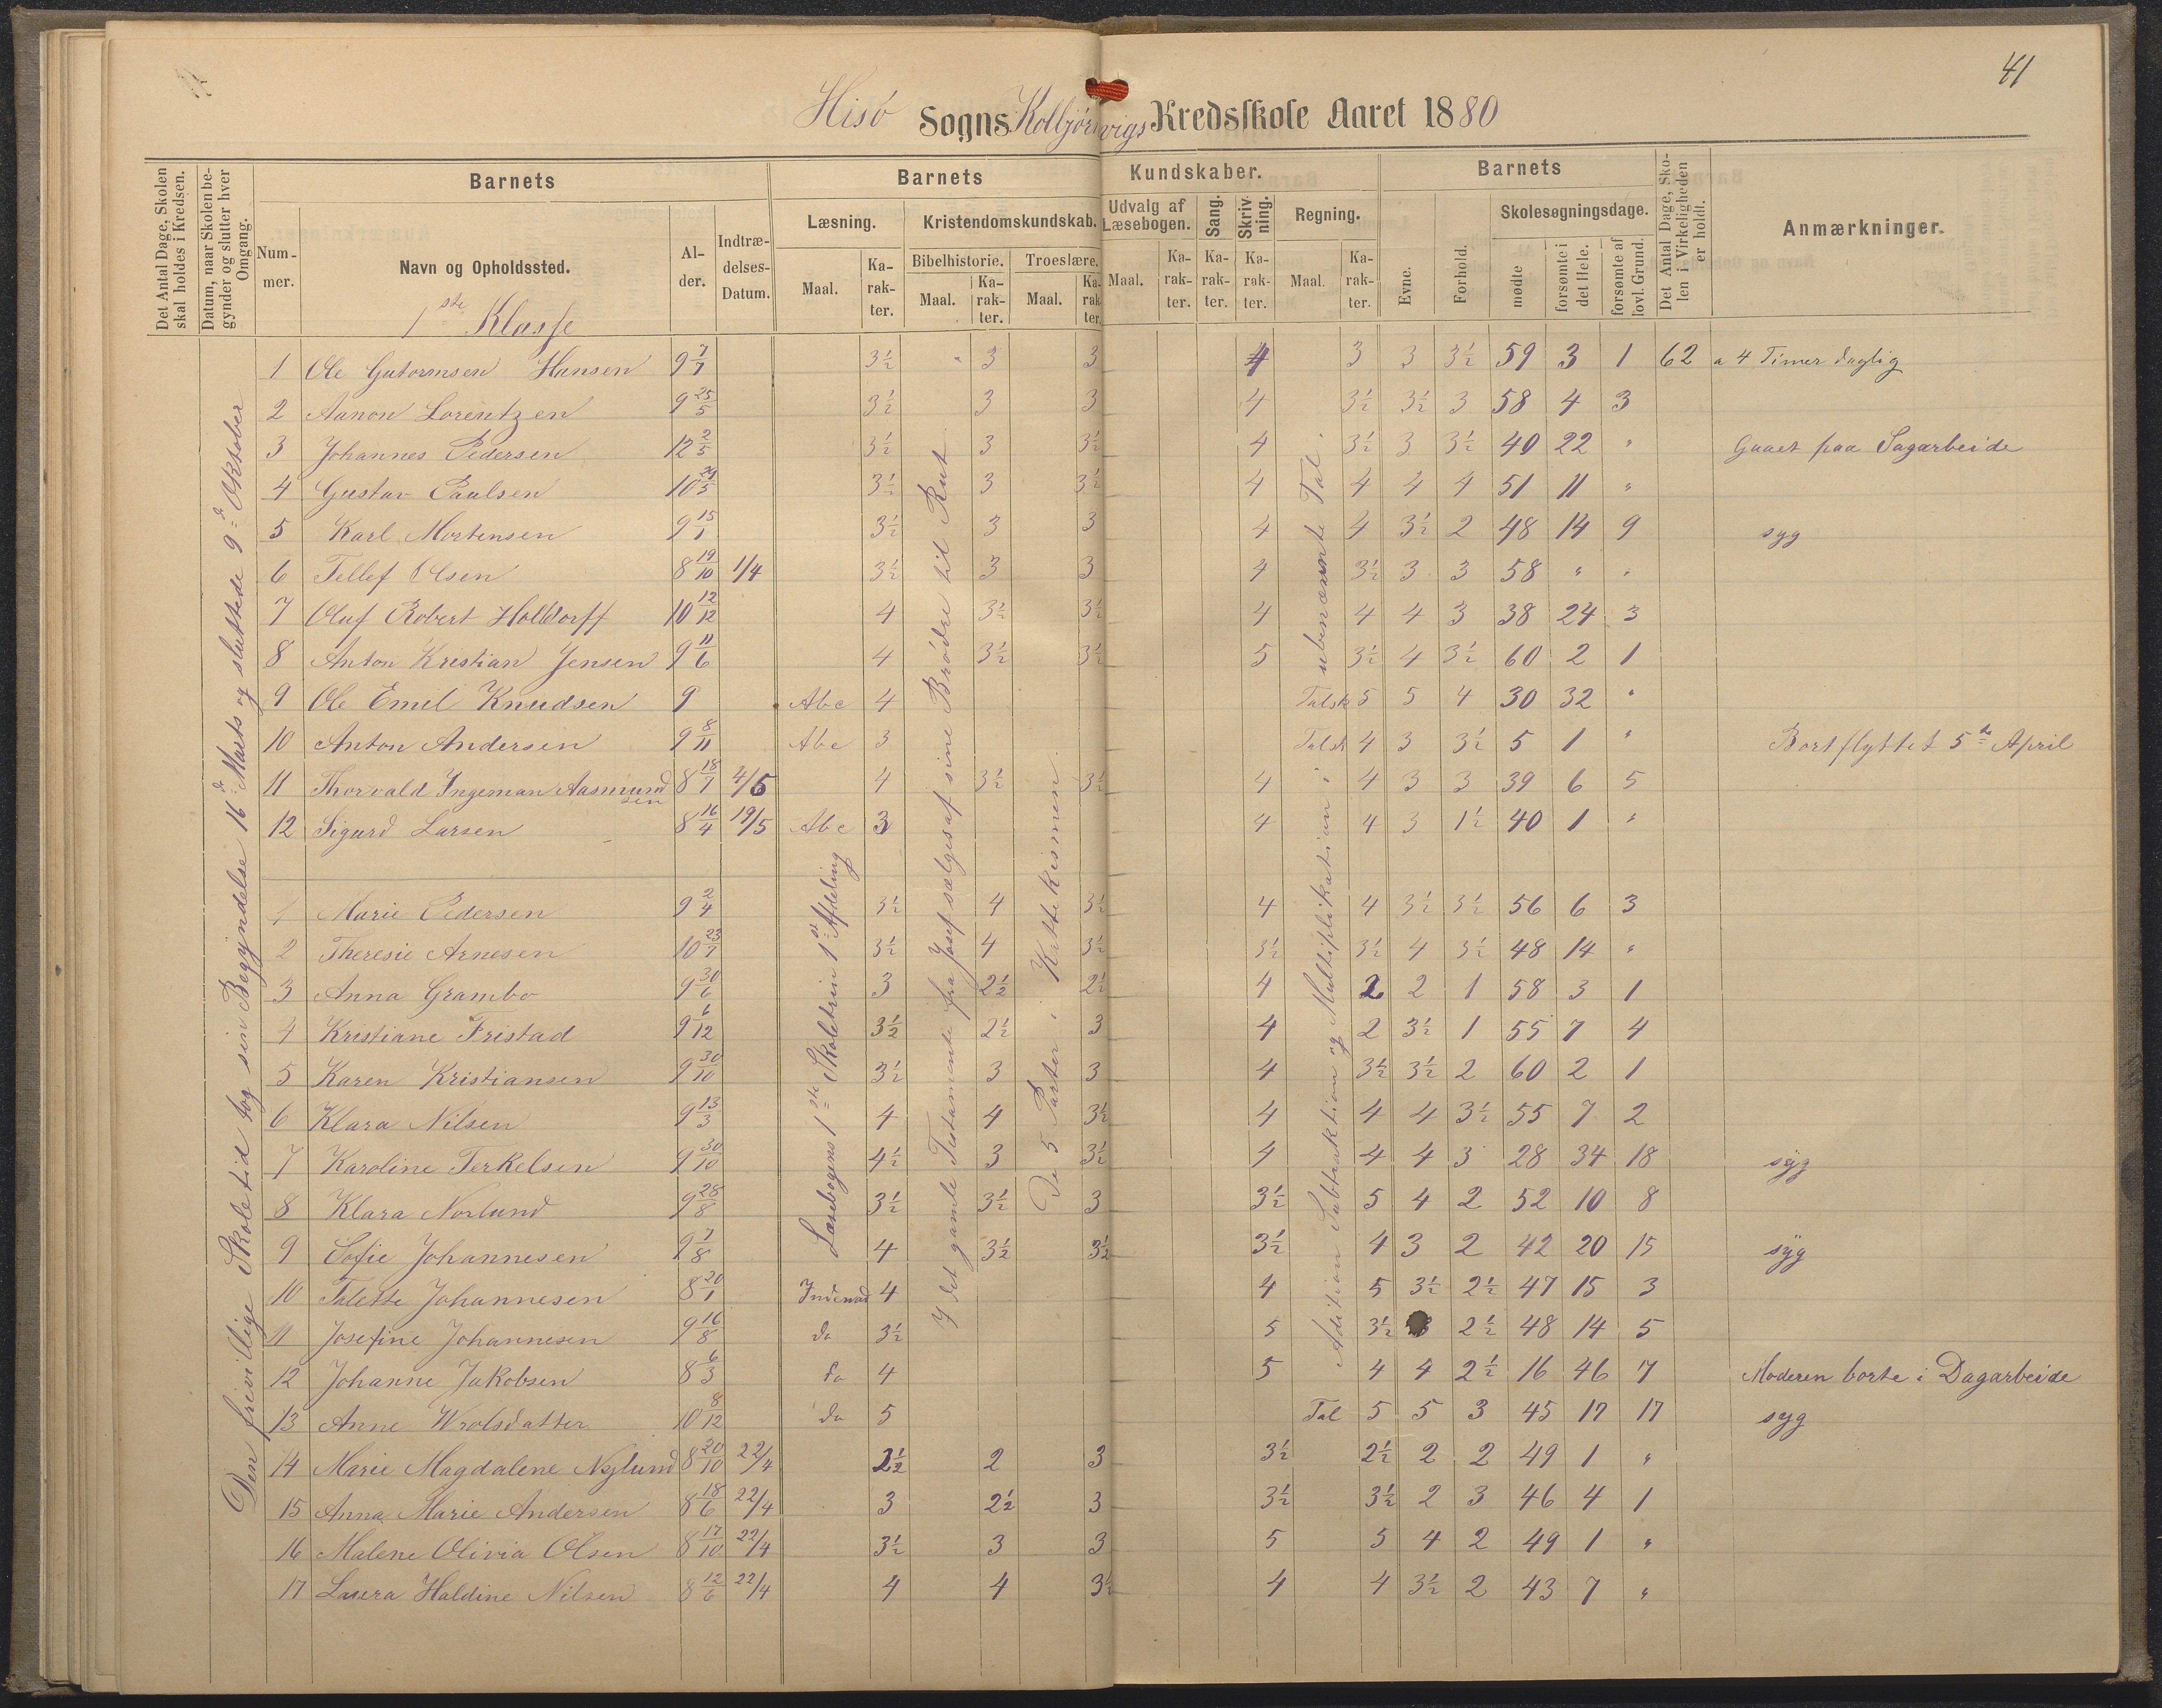 41
Hisö Sogns Kolbjørnvigs Kredsskole Aaret 1880
Det Antal Dage, Skolen skal holdes i Kredsen.
Datum, naar Skolen begynder og slutter hver Omgang.
Barnets
Nummer.
Navn og Opholdssted.
Alder.
Indtrædelses-Datum.
Barnets Kundskaber.
Læsning.
Maal.
Karakter.
Kristendomskundskab.
Bibelhistorie.
Maal.
Karakter.
Troeslære.
Maal.
Karakter.
Udvalg af Læsebogen.
Maal.
Karakter.
Sang.
Karakter.
Skrivning.
Karakter.
Regning.
Maal.
Karakter.
Barnets
Evne.
Forhold.
Skolesøgningsdage.
mødte
forsømte i det Hele.
forsømte af lovl. Grund.
Det Antal Dage, Skolen i Virkeligheden er holdt.
Anmærkninger.
1ste Klasse
Den frivillige Skoletid tog sin Begyndelse 16de Marts og sluttede 9de Oktober
Læsebogens 1ste Skoletrin 1ste Afdeling
I det gamle Testamente fra Josef sælges af sine Brødre til Rut
De 5 Parter i Kattekismen
Adition Subtraktion og Multiplikation i ubenævnte Tal.
1 Ole Gutormsen Hansen 9 7/7 3½ 3 3 4 3 3 3½ 59 3 1 62 a 4 Timer daglig
2 Aanon Lorentzen 9 25/5 3½ 3 3 4 3½ 3½ 3 58 4 3
3 Johannes Pedersen 12 2/5 3½ 3 3½ 4 3½ 3 3½ 40 22 " Gaaet paa Sagarbeide
4 Gustav Paulsen 10 29/5 3½ 3 3½ 4 4 4 4 51 11 "
5 Karl Mortensen 9 15/1 3½ 3 3 4 4 3½ 2 48 14 9 syg
6 Tellef Olsen 8 19/10 1/4 3½ 3 3 4 3½ 3 3 58 " "
7 Oluf Robert Holldorff 10 12/12 4 3½ 3½ 4 4 4 3 38 24 3
8 Anton Kristian Jensen 9 11/6 4 3½ 3½ 5 3½ 4 3½ 60 2 1
9 Ole Emil Knudsen 9 Abc 4 Talsk 5 5 4 30 32 "
10 Anton Andersen 9 8/11 Abc 3 Talsk 4 3 3½ 5 1 " Bortflyttet 5te April
11 Thorvald Ingeman Aasmundsen 8 18/7 4/5 4 3½ 3½ 4 4 3 3 39 6 5
12 Sigurd Larsen 8 16/4 19/5 Abc 3 4 4 3 1½ 40 1 "
1 Marie Pedersen 9 2/4 3½ 4 3½ 4 4 3½ 3½ 56 6 3
2 Theresie Arnesen 10 23/7 3½ 4 3½ 3½ 3½ 4 3½ 48 14 "
3 Anna Grambo 9 30/6 3 2½ 2½ 4 2 2 1 58 3 1
4 Kristiane Fristad 9 6/12 3½ 2½ 3 4 2 3½ 1 55 7 4
5 Karen Kristiansen 9 30/10 3½ 3 3 4 3½ 3½ 2 60 2 1
6 Klara Nilsen 9 13/3 4 4 3½ 4 4 4 3½ 55 7 2
7 Karoline Terkelsen 9 30/10 4½ 3 3½ 4 4 4 3 28 34 18 syg
8 Klara Norlund 9 28/8 3½ 3½ 3 3½ 5 4 2 52 10 8
9 Sofie Johannesen 9 7/8 4 3½ 3½ 3½ 4 3 2 42 20 15 syg
10 Talette Johannesen 8 20/1 4 4 5 3½ 2½ 47 15 3
11 Josefine Johannesen 9 16/8 do 3½ 5 3½ 3 2½ 48 14 5
12 Johanne Jakobsen 8 6/3 do 4 5 4 4 2½ 16 46 7 Moderen borte i Dagarbeide
13 Anne Wrolsdatter 10 8/12 do 5 Tal 5 5 3 45 17 17 syg
14 Marie Magdalene Nylund 8 20/10 22/4 2½ 2 3 3½ 2½ 2 2 49 1 "
15 Anna Marie Andersen 8 18/6 22/4 3 2½ 3 3½ 3½ 2 3 46 4 1
16 Malene Olivia Olsen 8 17/10 22/4 3½ 3 3 5 5 4 2 49 1 "
17 Laura Haldine Nilsen 8 12/6 22/4 4 4 3½ 4 4 3½ 2 43 7 "